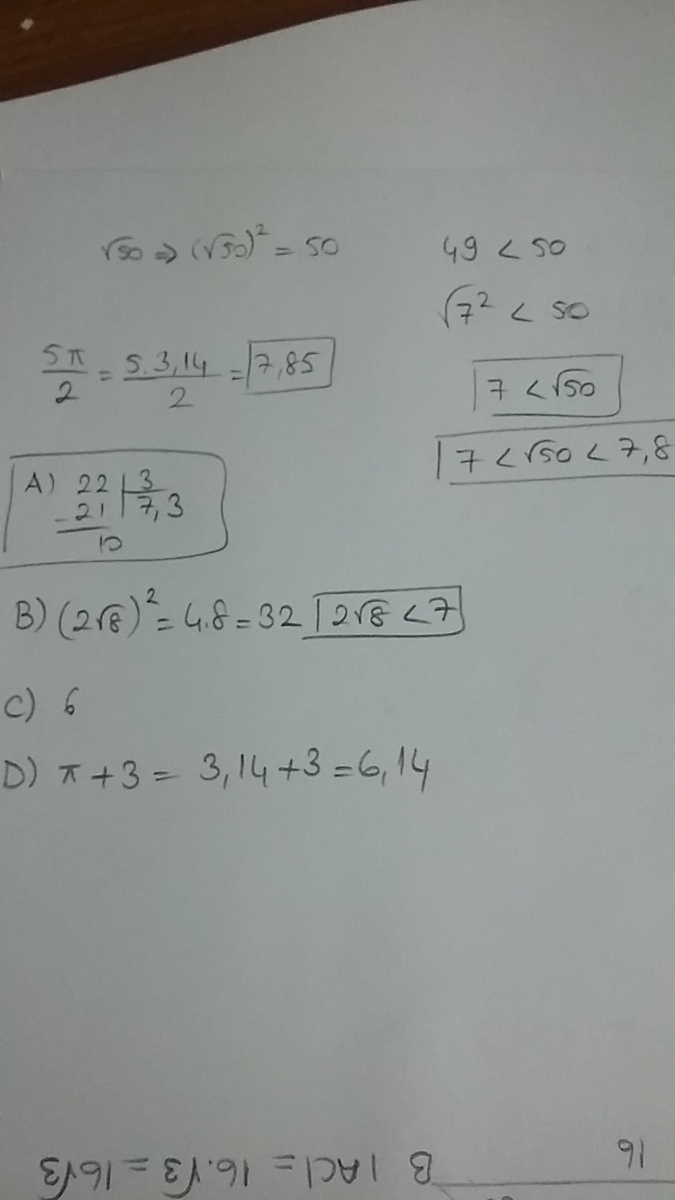 √50 ⇒ (√50)² = 50
49 < 50
√7² < 50
5π/2 = 5.3,14/2 = 7,85
7 < √50
7 < √50 < 7,8
A) 22 | 3
-21 | 7,3
10
B) (2√8)² = 4.8 = 32 2√8 < 7
C) 6
D) π + 3 = 3,14 + 3 = 6,14
16
B |AC| = 16.√3 = 16√3